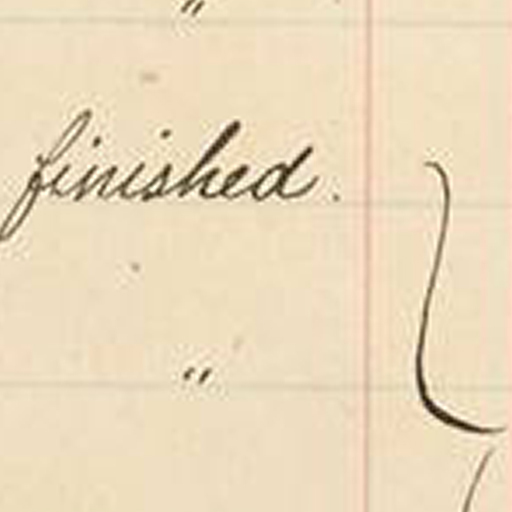 "
finished.
"